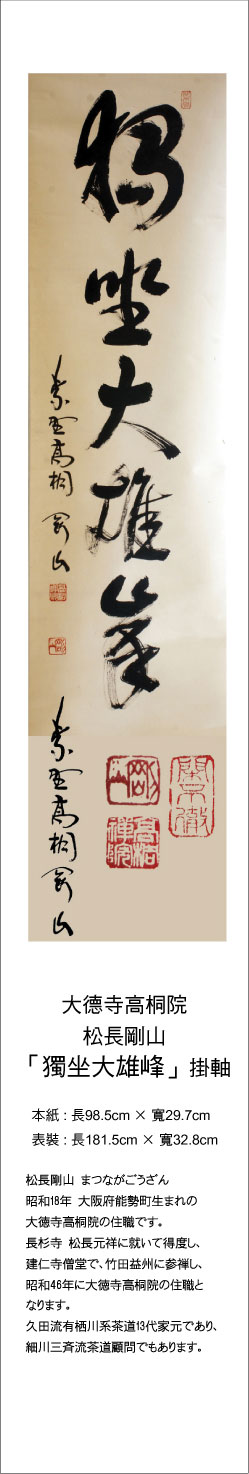 獨坐大雄峰
紫野高桐 剛山
紫野高桐剛山
剛山
高桐禅院
大德寺高桐院
松長剛山
「獨坐大雄峰」掛軸
本紙：長98.5cm × 寬29.7cm
表裝：長181.5cm × 寬32.8cm
松長剛山 まつながごうざん
昭和18年 大阪府能勢町生まれの
大徳寺高桐院の住職です。
長杉寺 松長元祥に就いて得度し、
建仁寺僧堂で、竹田益州に参禅し、
昭和46年に大徳寺高桐院の住職と
なります。
久田流有栖川系茶道13代家元であり、
細川三斉流茶道顧問でもあります。